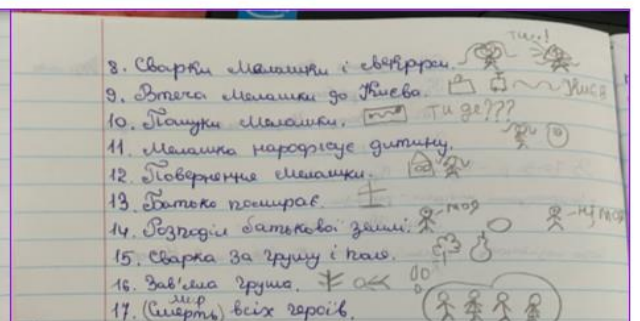 ти..!
8. Сварки Мелашки і свекрухи.
9. Втеча Мелашки до Києва. Київ
10. Пошуки Мелашки. ти де???
11. Мелашка народжує дитину.
12. Повернення Мелашки.
13. Батько помирає.
14. Розподіл батькової землі. -моя -ні моя
15. Сварка за грушу і поле.
16. Зав'яла груша.
мир
17. (Смерть) всіх героїв.